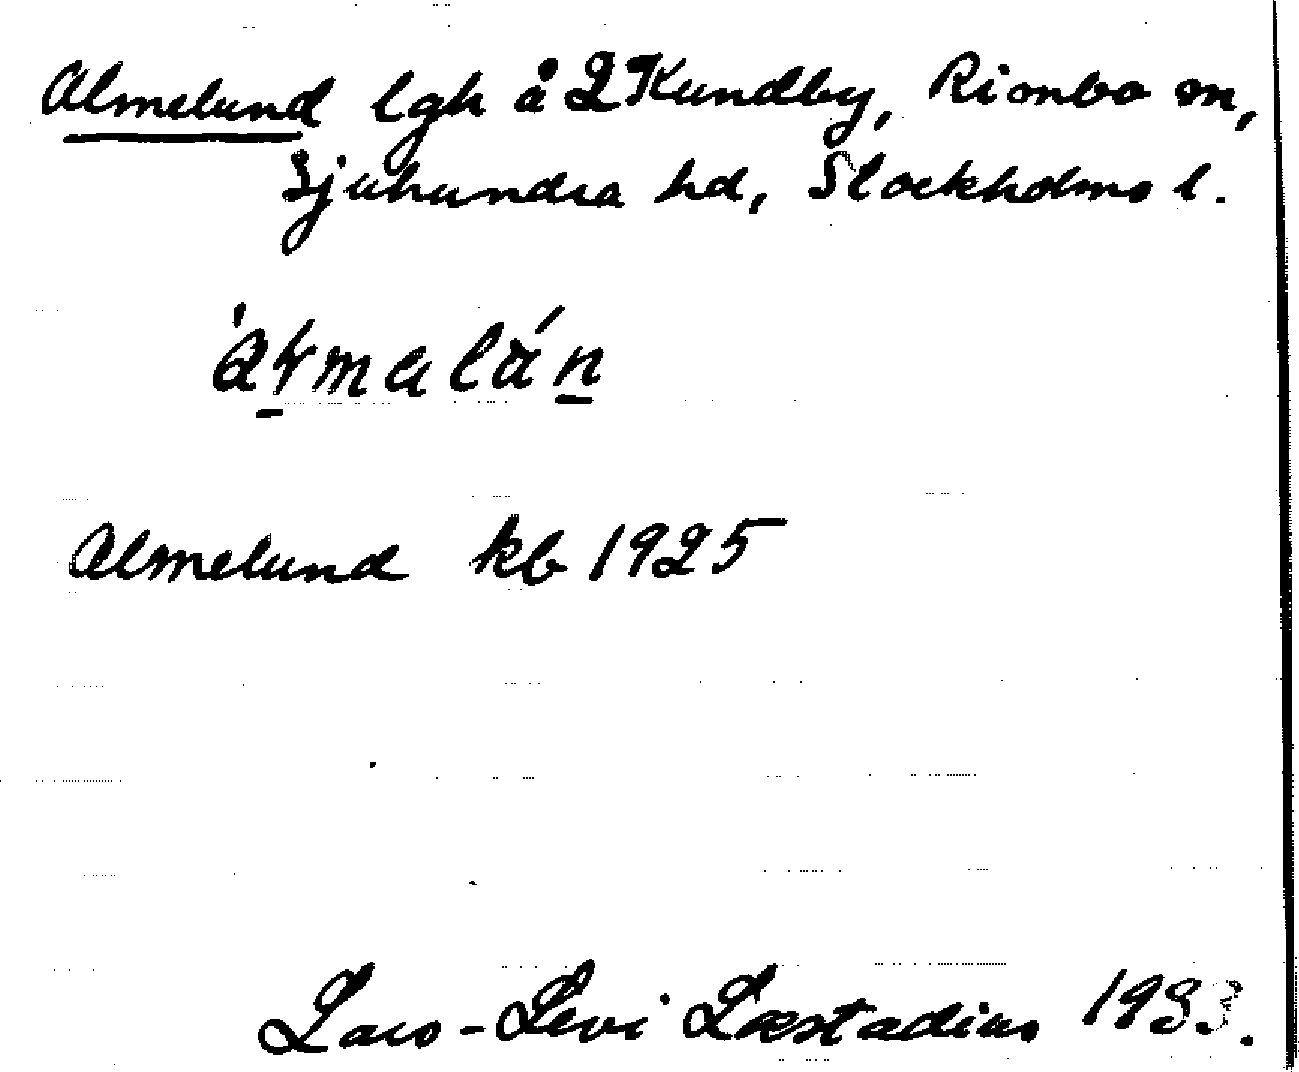 Almelund lgh å 2 Kundby, Rimbo sn,
Sjuhundra hd, Stockholms l.
Almelund kb 1925
Lars-Levi Læstadius 1933.